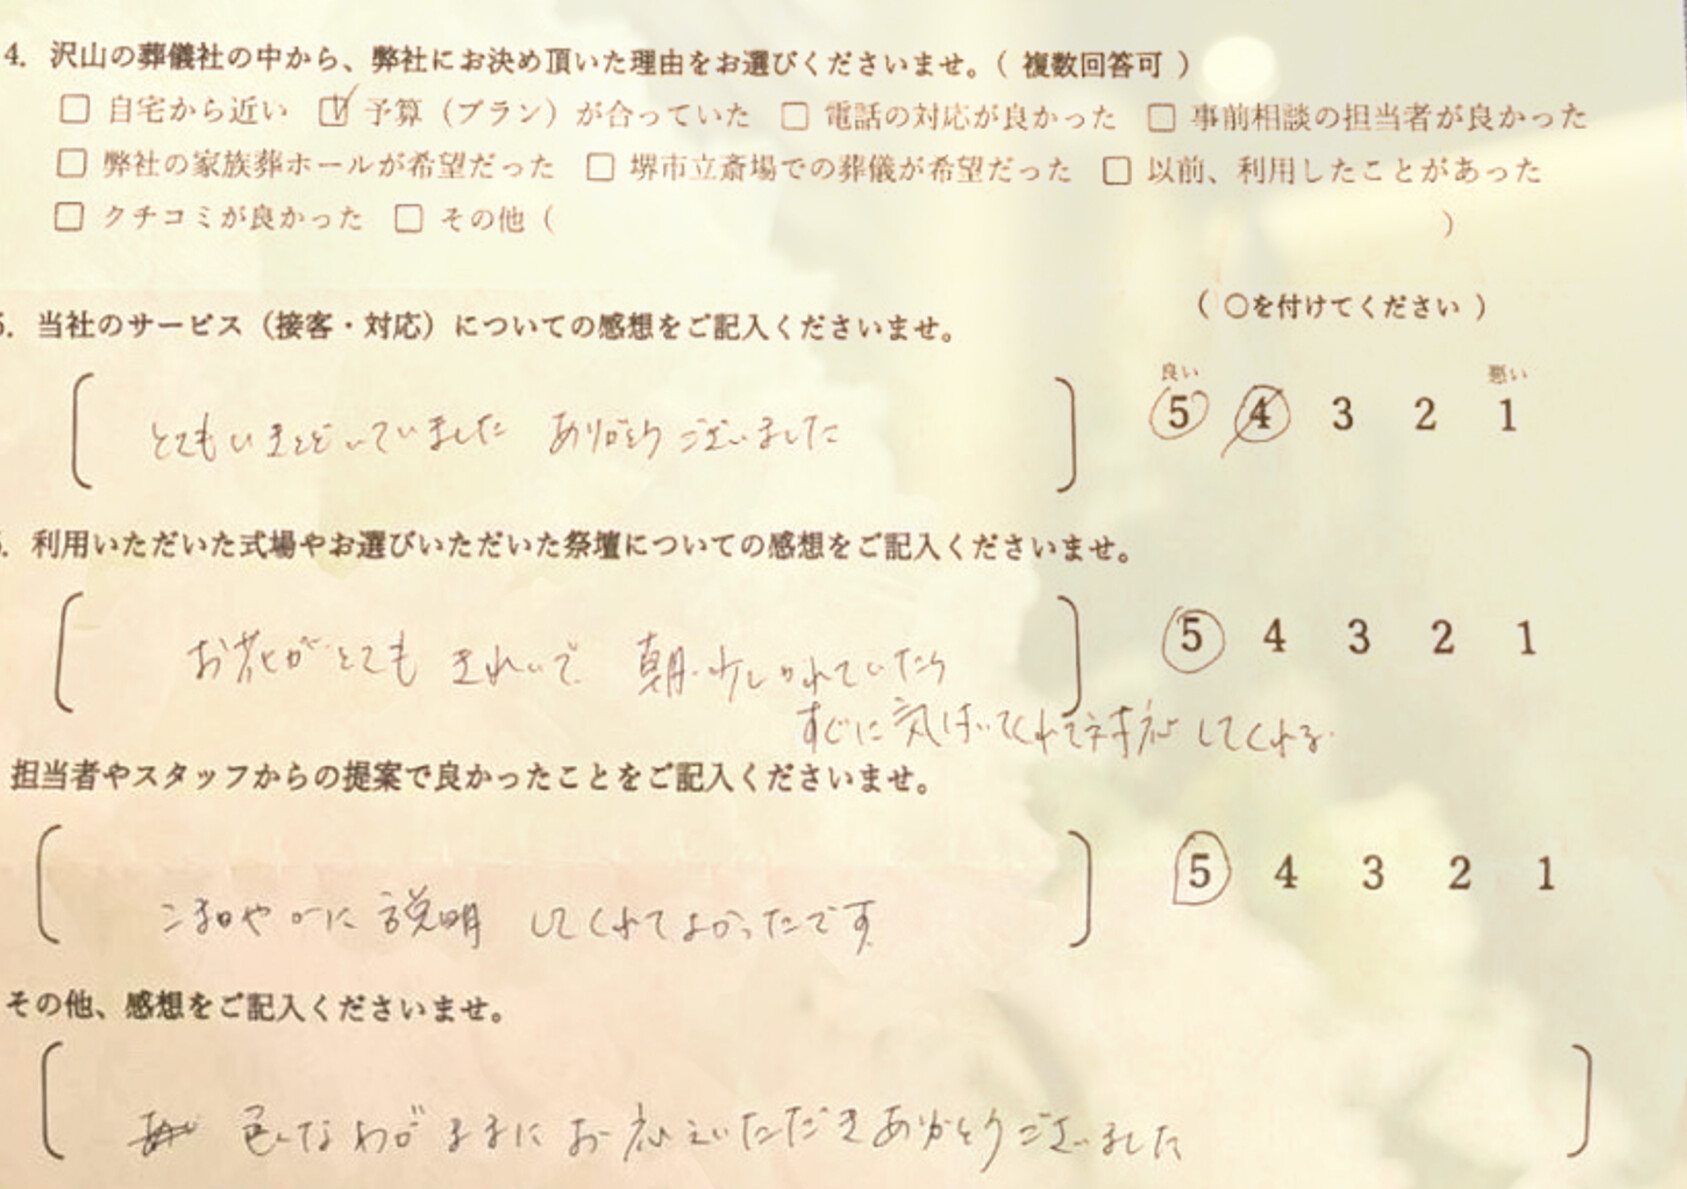 4. 沢山の葬儀社の中から、弊社にお決め頂いた理由をお選びくださいませ。( 複数回答可 )
□ 自宅から近い ☑ 予算（プラン）が合っていた □ 電話の対応が良かった □ 事前相談の担当者が良かった
□ 弊社の家族葬ホールが希望だった □ 堺市立斎場での葬儀が希望だった □ 以前、利用したことがあった
□ クチコミが良かった □ その他（ ）
( ○を付けてください )
5. 当社のサービス（接客・対応）についての感想をご記入くださいませ。
良い 悪い
とてもいきとどいていました ありがとうございました
5 4 3 2 1
. 利用いただいた式場やお選びいただいた祭壇についての感想をご記入くださいませ。
お花がとても きれいで 朝 少しかれていたら
5 4 3 2 1
すぐに気付いてくれて対応してくれる
担当者やスタッフからの提案で良かったことをご記入くださいませ。
5 4 3 2 1
こまやかに説明 してくれてよかったです
その他、感想をご記入くださいませ。
色々なわがままにお応えいただきありがとうございました